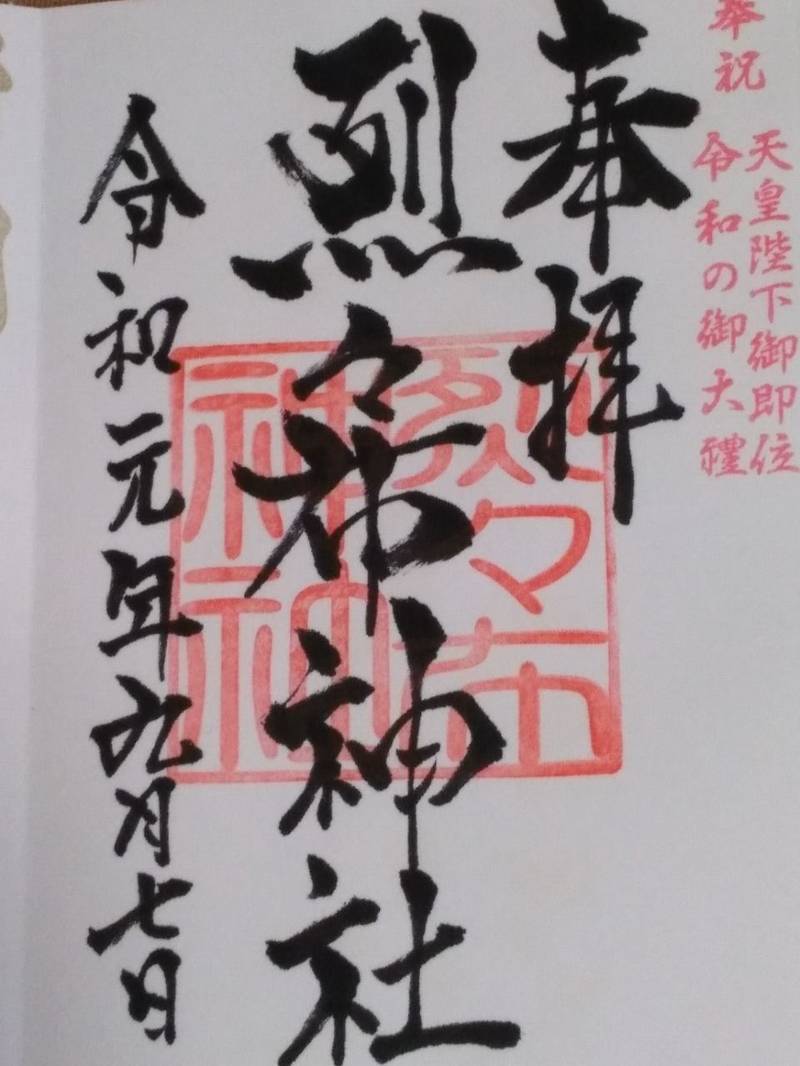 奉祝
天皇陛下御即位
令和の御大禮
奉拝
烈々布神社
令和元年九月七日
烈々布
神